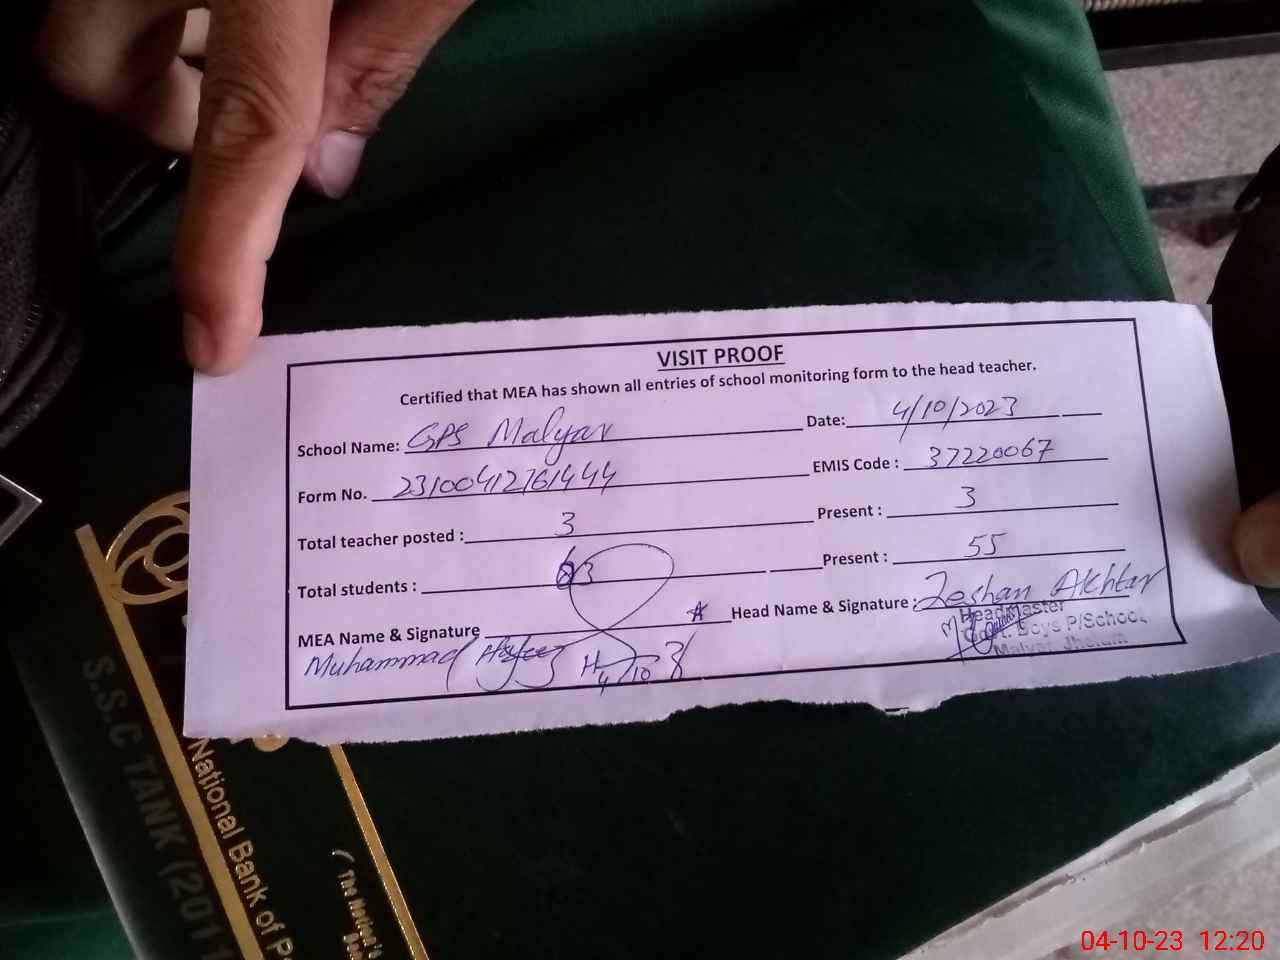 VISIT PROOF
Certified that MEA has shown all entries of school monitoring form to the head teacher.
School Name: GPS Malyar Date: 4/10/2023
Form No. 23100412761444 EMIS Code : 37220067
Total teacher posted : 3 Present : 3
Total students : 63 Present : 55
MEA Name & Signature Head Name & Signature : Zeshan Akhtar
Muhammad Hafeez
Headmaster
Govt. Boys P/School
Malyar Jhelum
National Bank of P
S.S.C TANK (2011
( The Nation's
04-10-23 12:20